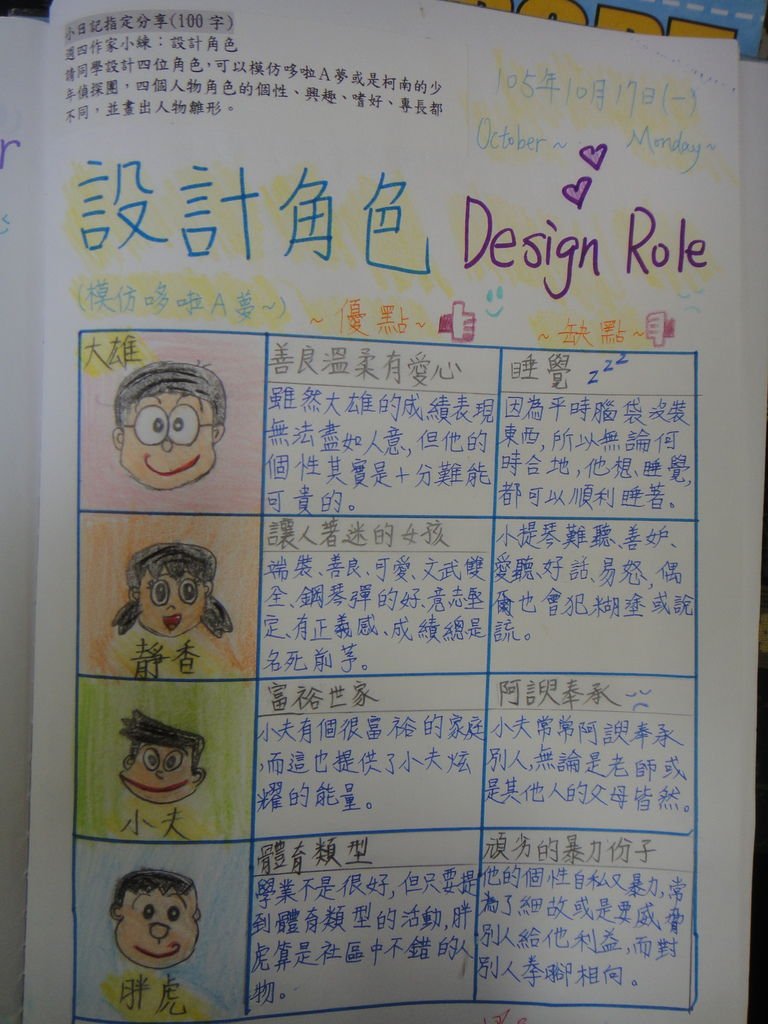 小日記指定分享(100字)
週四作家小練：設計角色
請同學設計四位角色，可以模仿哆啦A夢或是柯南的少
年偵探團，四個人物角色的個性、興趣、嗜好、專長都
不同，並畫出人物雛形。
105年10月17日(一)
October~ Monday~
設計角色 Design Role
(模仿哆啦A夢~)
~優點~
~缺點~
大雄
善良溫柔有愛心
雖然大雄的成績表現
無法盡如人意，但他的
個性其實是十分難能
可貴的。
睡覺 zzz
因為平時腦袋沒裝
東西，所以無論何
時合地，他想睡覺，
都可以順利睡著。
靜香
讓人著迷的女孩
端裝、善良、可愛、文武雙
全、鋼琴彈的好、意志堅
定、有正義感、成績總是
名死前茅。
小提琴難聽、善妒、
愛聽、好話、易怒，偶
爾也會犯糊塗或說
謊。
小夫
富裕世家
小夫有個很富裕的家庭
，而這也提供了小夫炫
耀的能量。
阿諛奉承
小夫常常阿諛奉承
別人，無論是老師或
是其他人的父母皆然。
胖虎
體育類型
學業不是很好，但只要提
到體育類型的活動，胖
虎算是社區中不錯的人
物。
頑劣的暴力份子
他的個性自私又暴力，常
為了細故或是要威脅
別人給他利益，而對
別人拳腳相向。